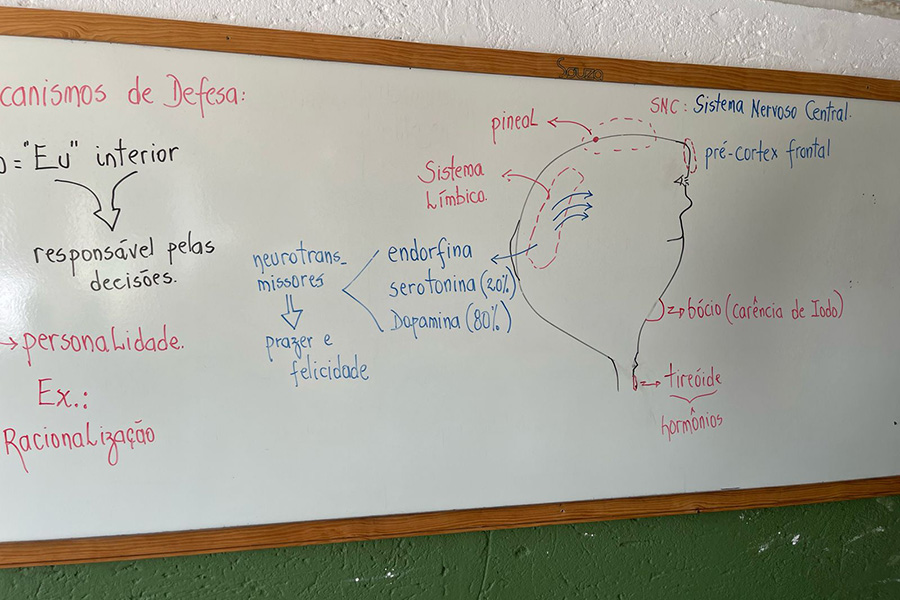 Souza
canismos de Defesa:
o = "Eu" interior
responsável pelas
decisões.
→ personalidade.
Ex.:
Racionalização
neurotrans_
missores
prazer e
felicidade
endorfina
serotonina (20%)
Dopamina (80%)
pineal
Sistema
Límbico.
SNC: Sistema Nervoso Central.
pré-cortex frontal
bócio (carência de Iodo)
tireóide
hormônios